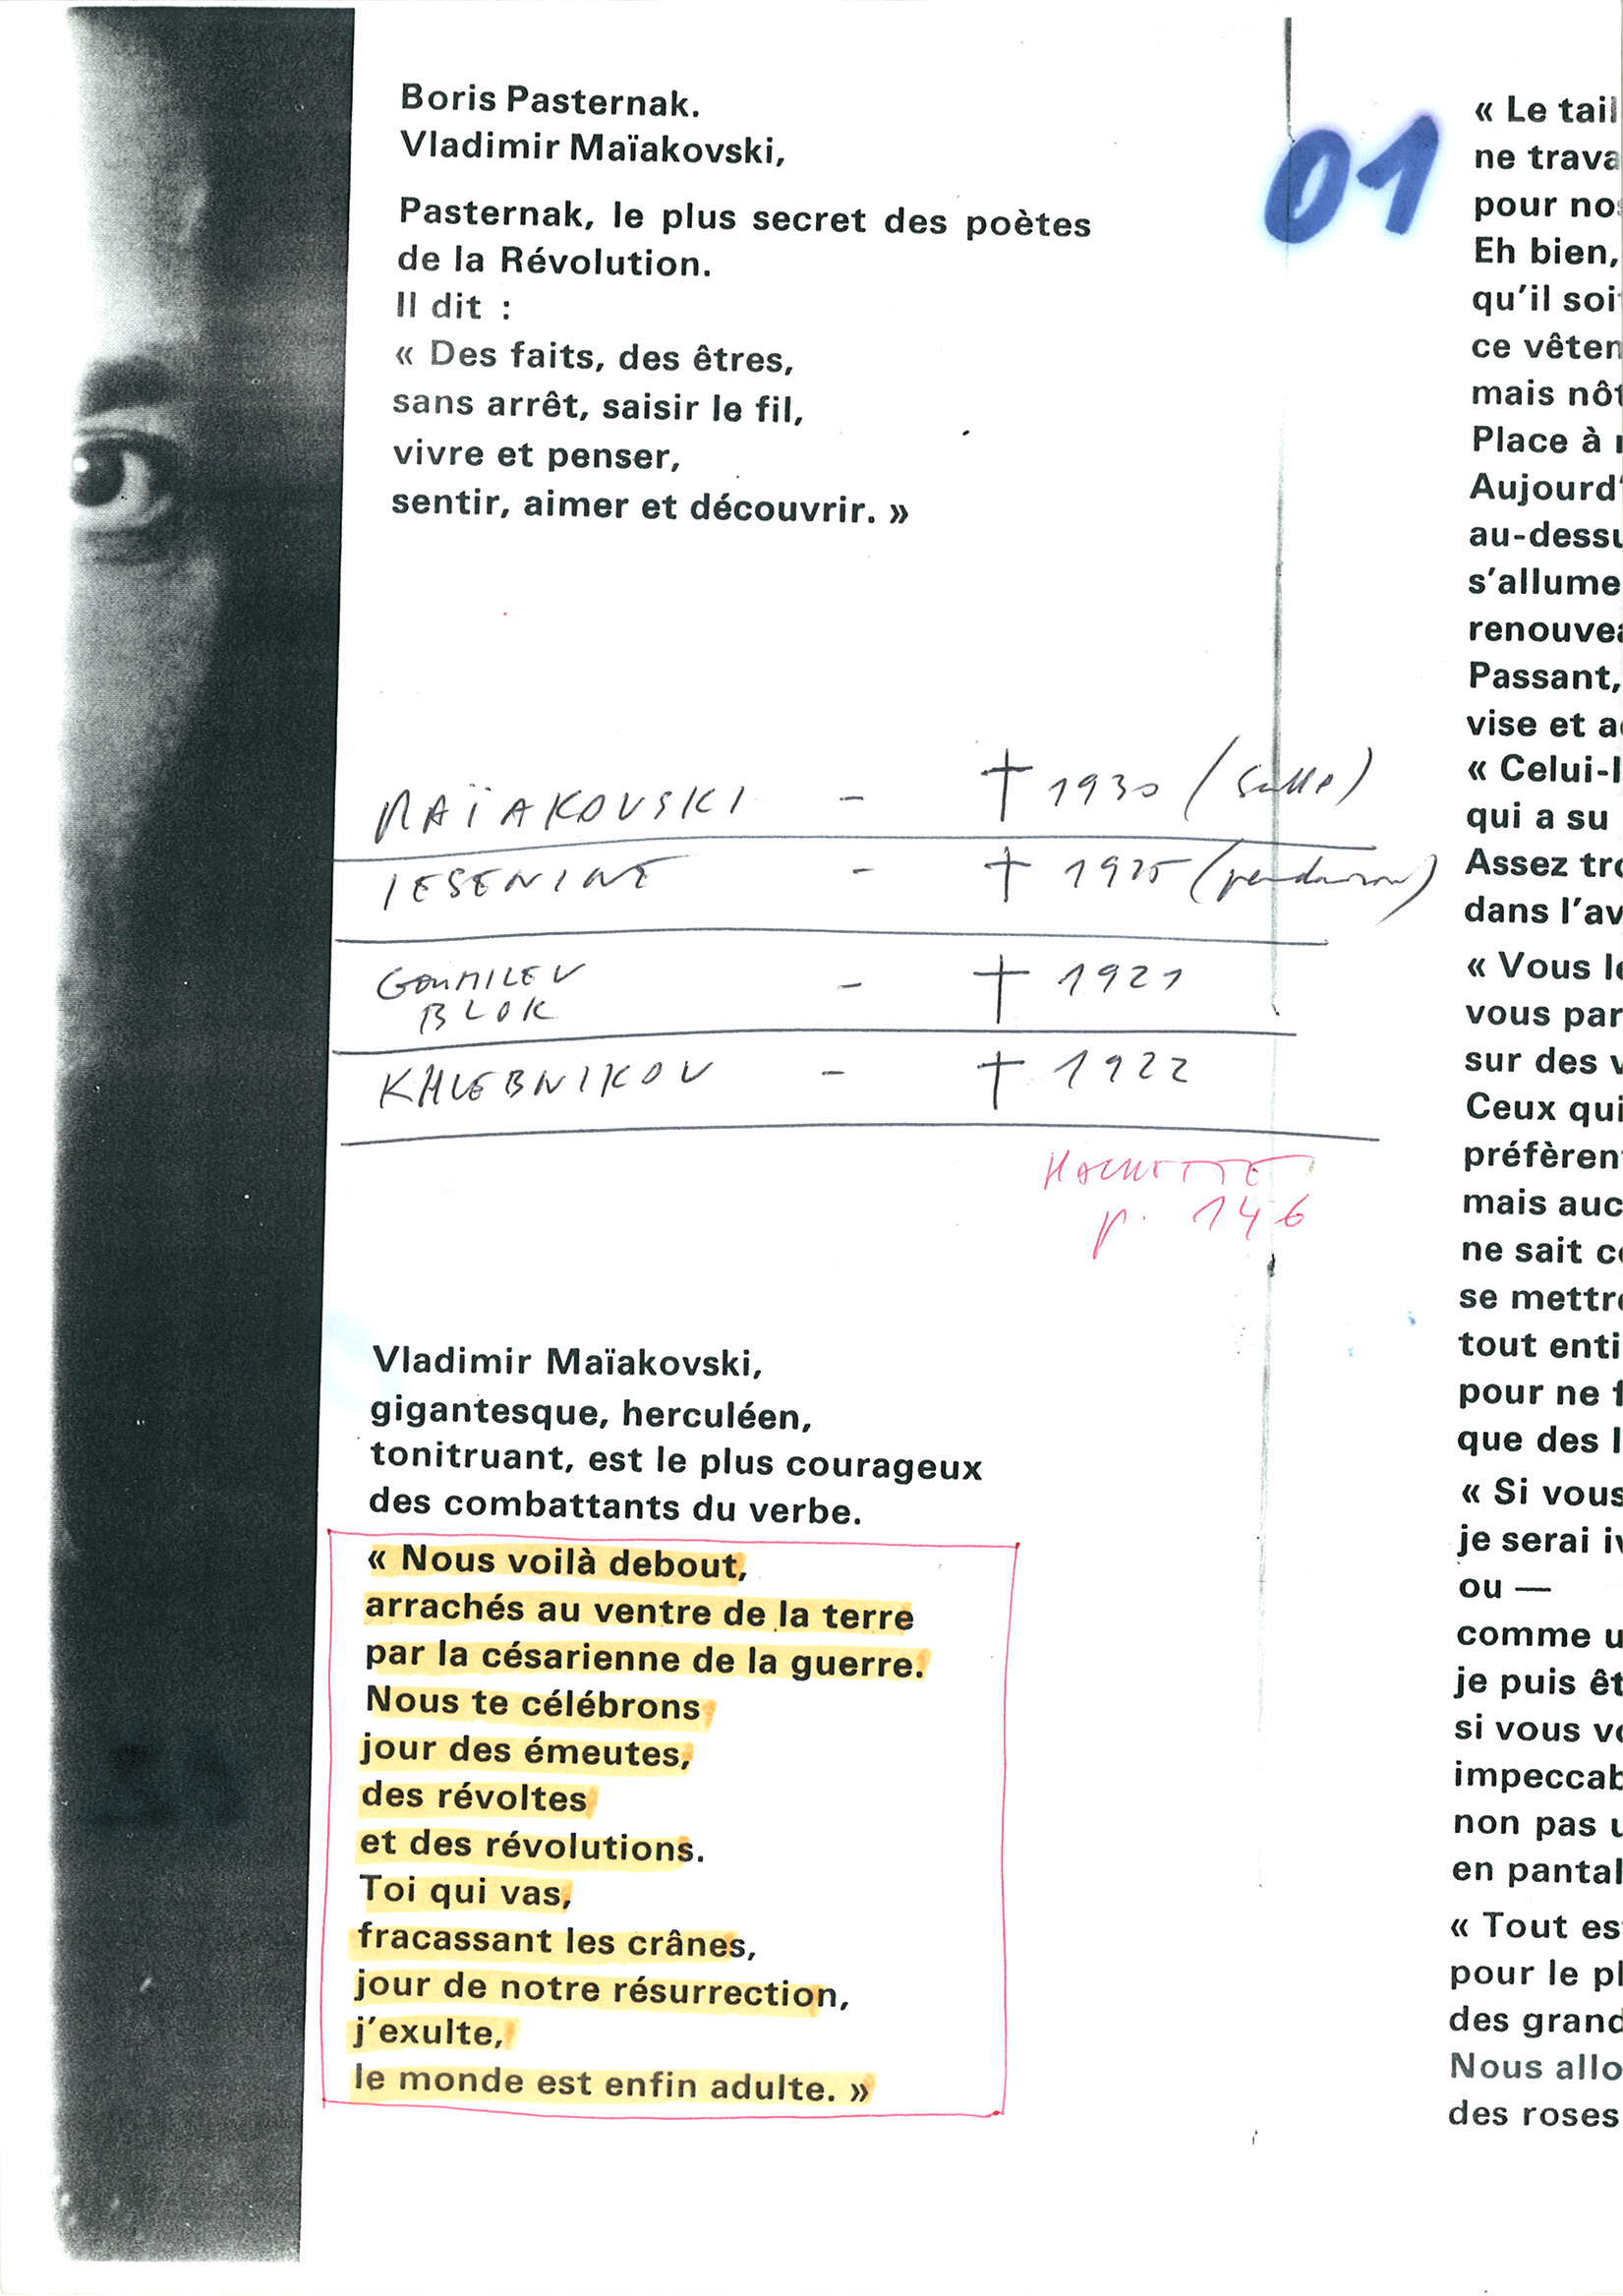 Boris Pasternak.
Vladimir Maïakovski,
Pasternak, le plus secret des poètes
de la Révolution.
Il dit :
« Des faits, des êtres,
sans arrêt, saisir le fil,
vivre et penser,
sentir, aimer et découvrir. »
MAÏAKOVSKI - † 1930 (balle)
IESENINE - † 1925 (pendaison)
GOUMILEV
BLOK - † 1921
KHLEBNIKOV - † 1922
HACHETTE
p. 146
Vladimir Maïakovski,
gigantesque, herculéen,
tonitruant, est le plus courageux
des combattants du verbe.
« Nous voilà debout,
arrachés au ventre de la terre
par la césarienne de la guerre.
Nous te célébrons
jour des émeutes,
des révoltes
et des révolutions.
Toi qui vas,
fracassant les crânes,
jour de notre résurrection,
j'exulte,
le monde est enfin adulte. »
01
« Le tail
ne trava
pour no
Eh bien,
qu'il soi
ce vêtem
mais nôt
Place à
Aujourd'
au-dessu
s'allume
renouvea
Passant,
vise et a
« Celui-l
qui a su
Assez tro
dans l'av
« Vous le
vous par
sur des v
Ceux qui
préfèren
mais auc
ne sait co
se mettre
tout enti
pour ne f
que des l
« Si vous
je serai iv
ou —
comme u
je puis êt
si vous vo
impeccab
non pas u
en pantal
« Tout es
pour le pl
des grand
Nous allo
des roses